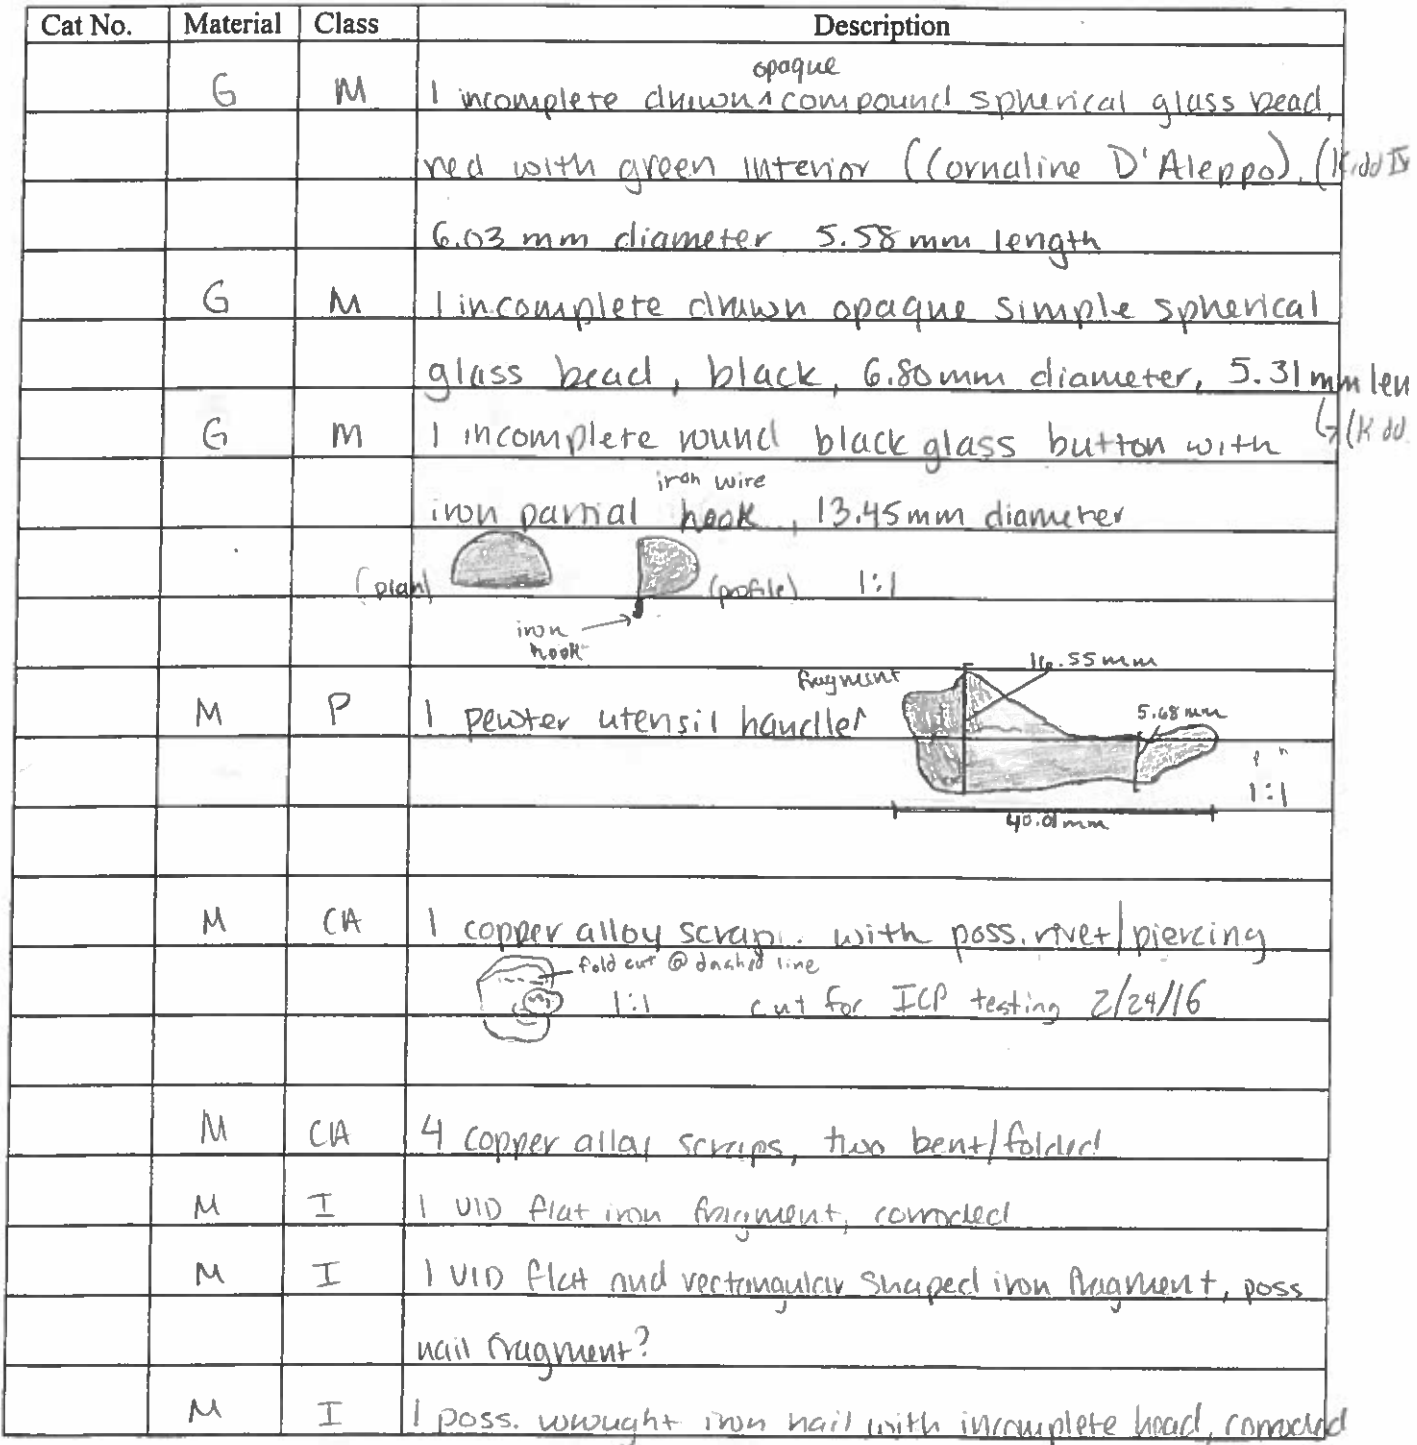 Cat No. Material Class Description
opaque
G M 1 incomplete drawn ^ compound spherical glass bead,
red with green interior (Cornaline D'Aleppo), (Kidd IV
6.03 mm diameter 5.58 mm length
G M 1 incomplete drawn opaque simple spherical
glass bead, black, 6.80mm diameter, 5.31 mm len
G M 1 incomplete round black glass button with (Kidd
iron wire
iron partial hook, 13.45mm diameter
(plan) (profile) 1:1
iron
hook
fragment 16.55mm
M P 1 pewter utensil handle 5.68 mm
1:1
40.01mm
M CA 1 copper alloy scrap with poss. rivet/piercing
fold cut @ dashed line
1:1 cut for ICP testing 2/24/16
M CA 4 copper alloy scraps, two bent/folded
M I 1 UID flat iron fragment, corroded
M I 1 UID flat and rectangular shaped iron fragment, poss
nail fragment?
M I 1 poss. wrought iron nail with incomplete head, corroded